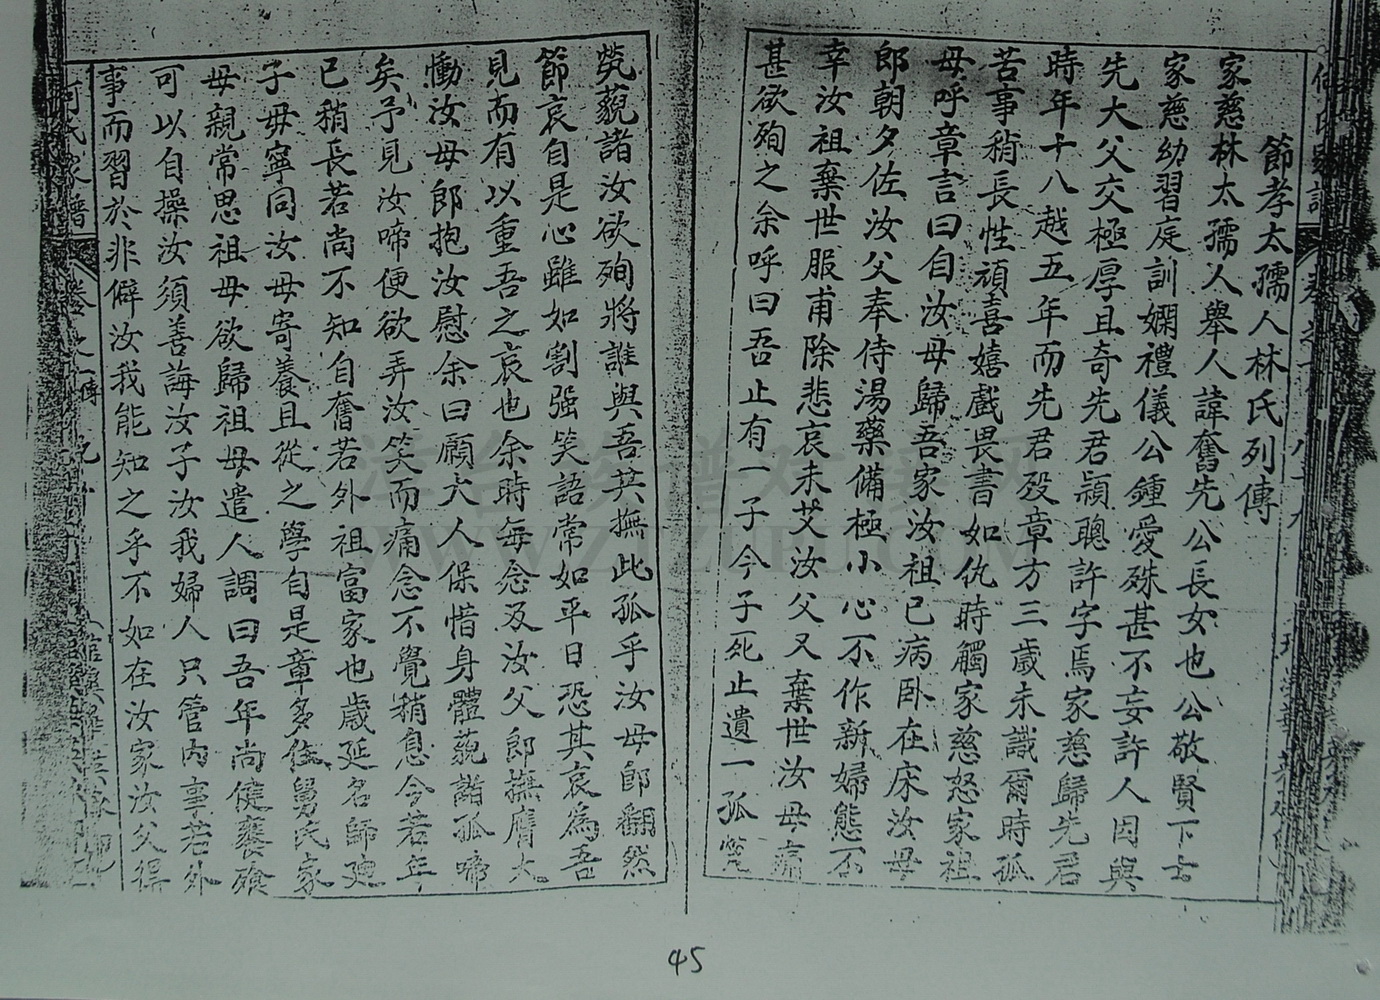 節孝太孺人林氏列傳
家慈林太孺人舉人諱奮先公長女也公敬賢下士
家慈幼習庭訓嫻禮儀公鍾愛殊甚不妄許人因與
先大父交極厚且奇先君穎聰許字焉家慈歸先君
時年十八越五年而先君歿章方三歲未識爾時孤
苦事稍長性頑喜嬉戲畏書如仇時觸家慈怒家祖
母呼章言曰自汝母歸吾家汝祖已病卧在床汝母
郎朝夕佐汝父奉侍湯藥備極小心不作新婦態不
幸汝祖棄世服甫除悲哀未艾汝父又棄世汝母痛
甚欲殉之余呼曰吾止有一子今子死止遺一孤煢
煢藐諸汝欲殉將誰與吾共撫此孤乎汝母郎翻然
節哀自是心雖如割强笑語常如平日恐其哀為吾
見而有以重吾之哀也余時每念及汝父郎撫膺大
慟汝母郎抱汝慰余曰顧大人保惜身體藐諸孤啼
矣予見汝啼便欲弄汝笑而痛念不覺稍息今若年
已稍長若尚不知自奮若外祖富家也歲延名師廸
子毋寧同汝母寄養且從之學自是章多住舅氏家
母親常思祖母欲歸祖母遣人謂曰吾年尚健饔飧
可以自操汝須善誨汝子汝我婦人只管內事若外
事而習於非僻汝我能知之乎不如在汝家汝父得
何氏家譜
卷之
傳
45